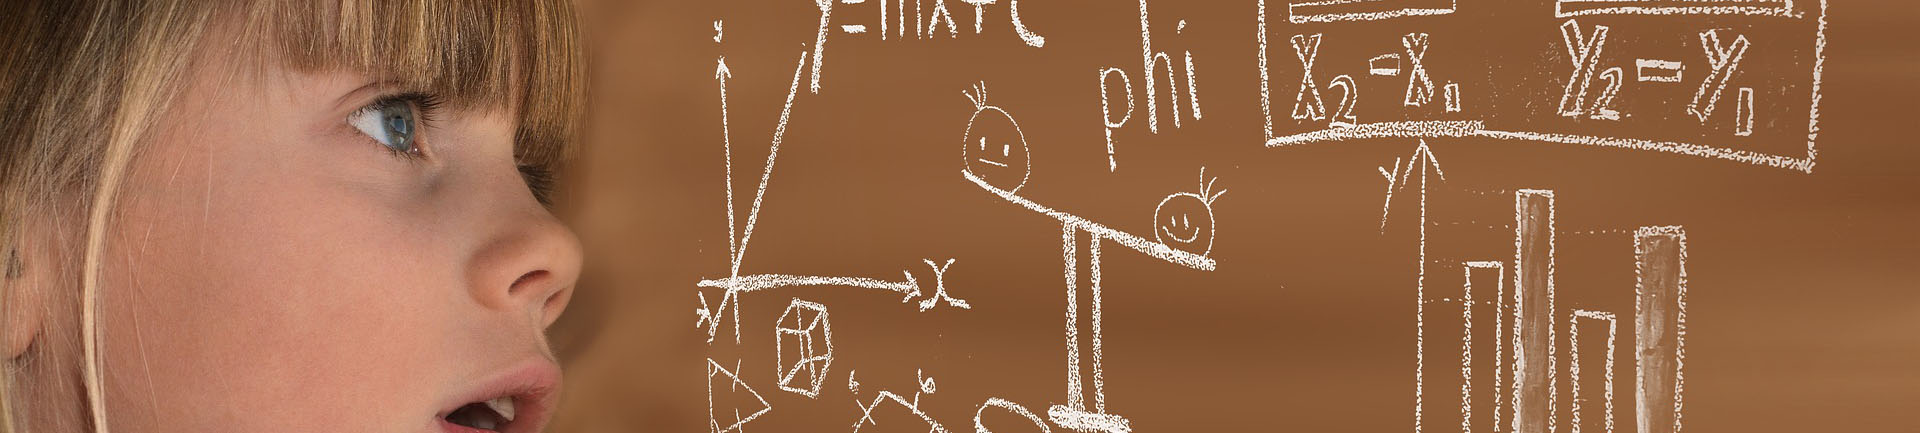 y
y=mx+c
phi
x₂-x₁
y₂-y₁
y
x